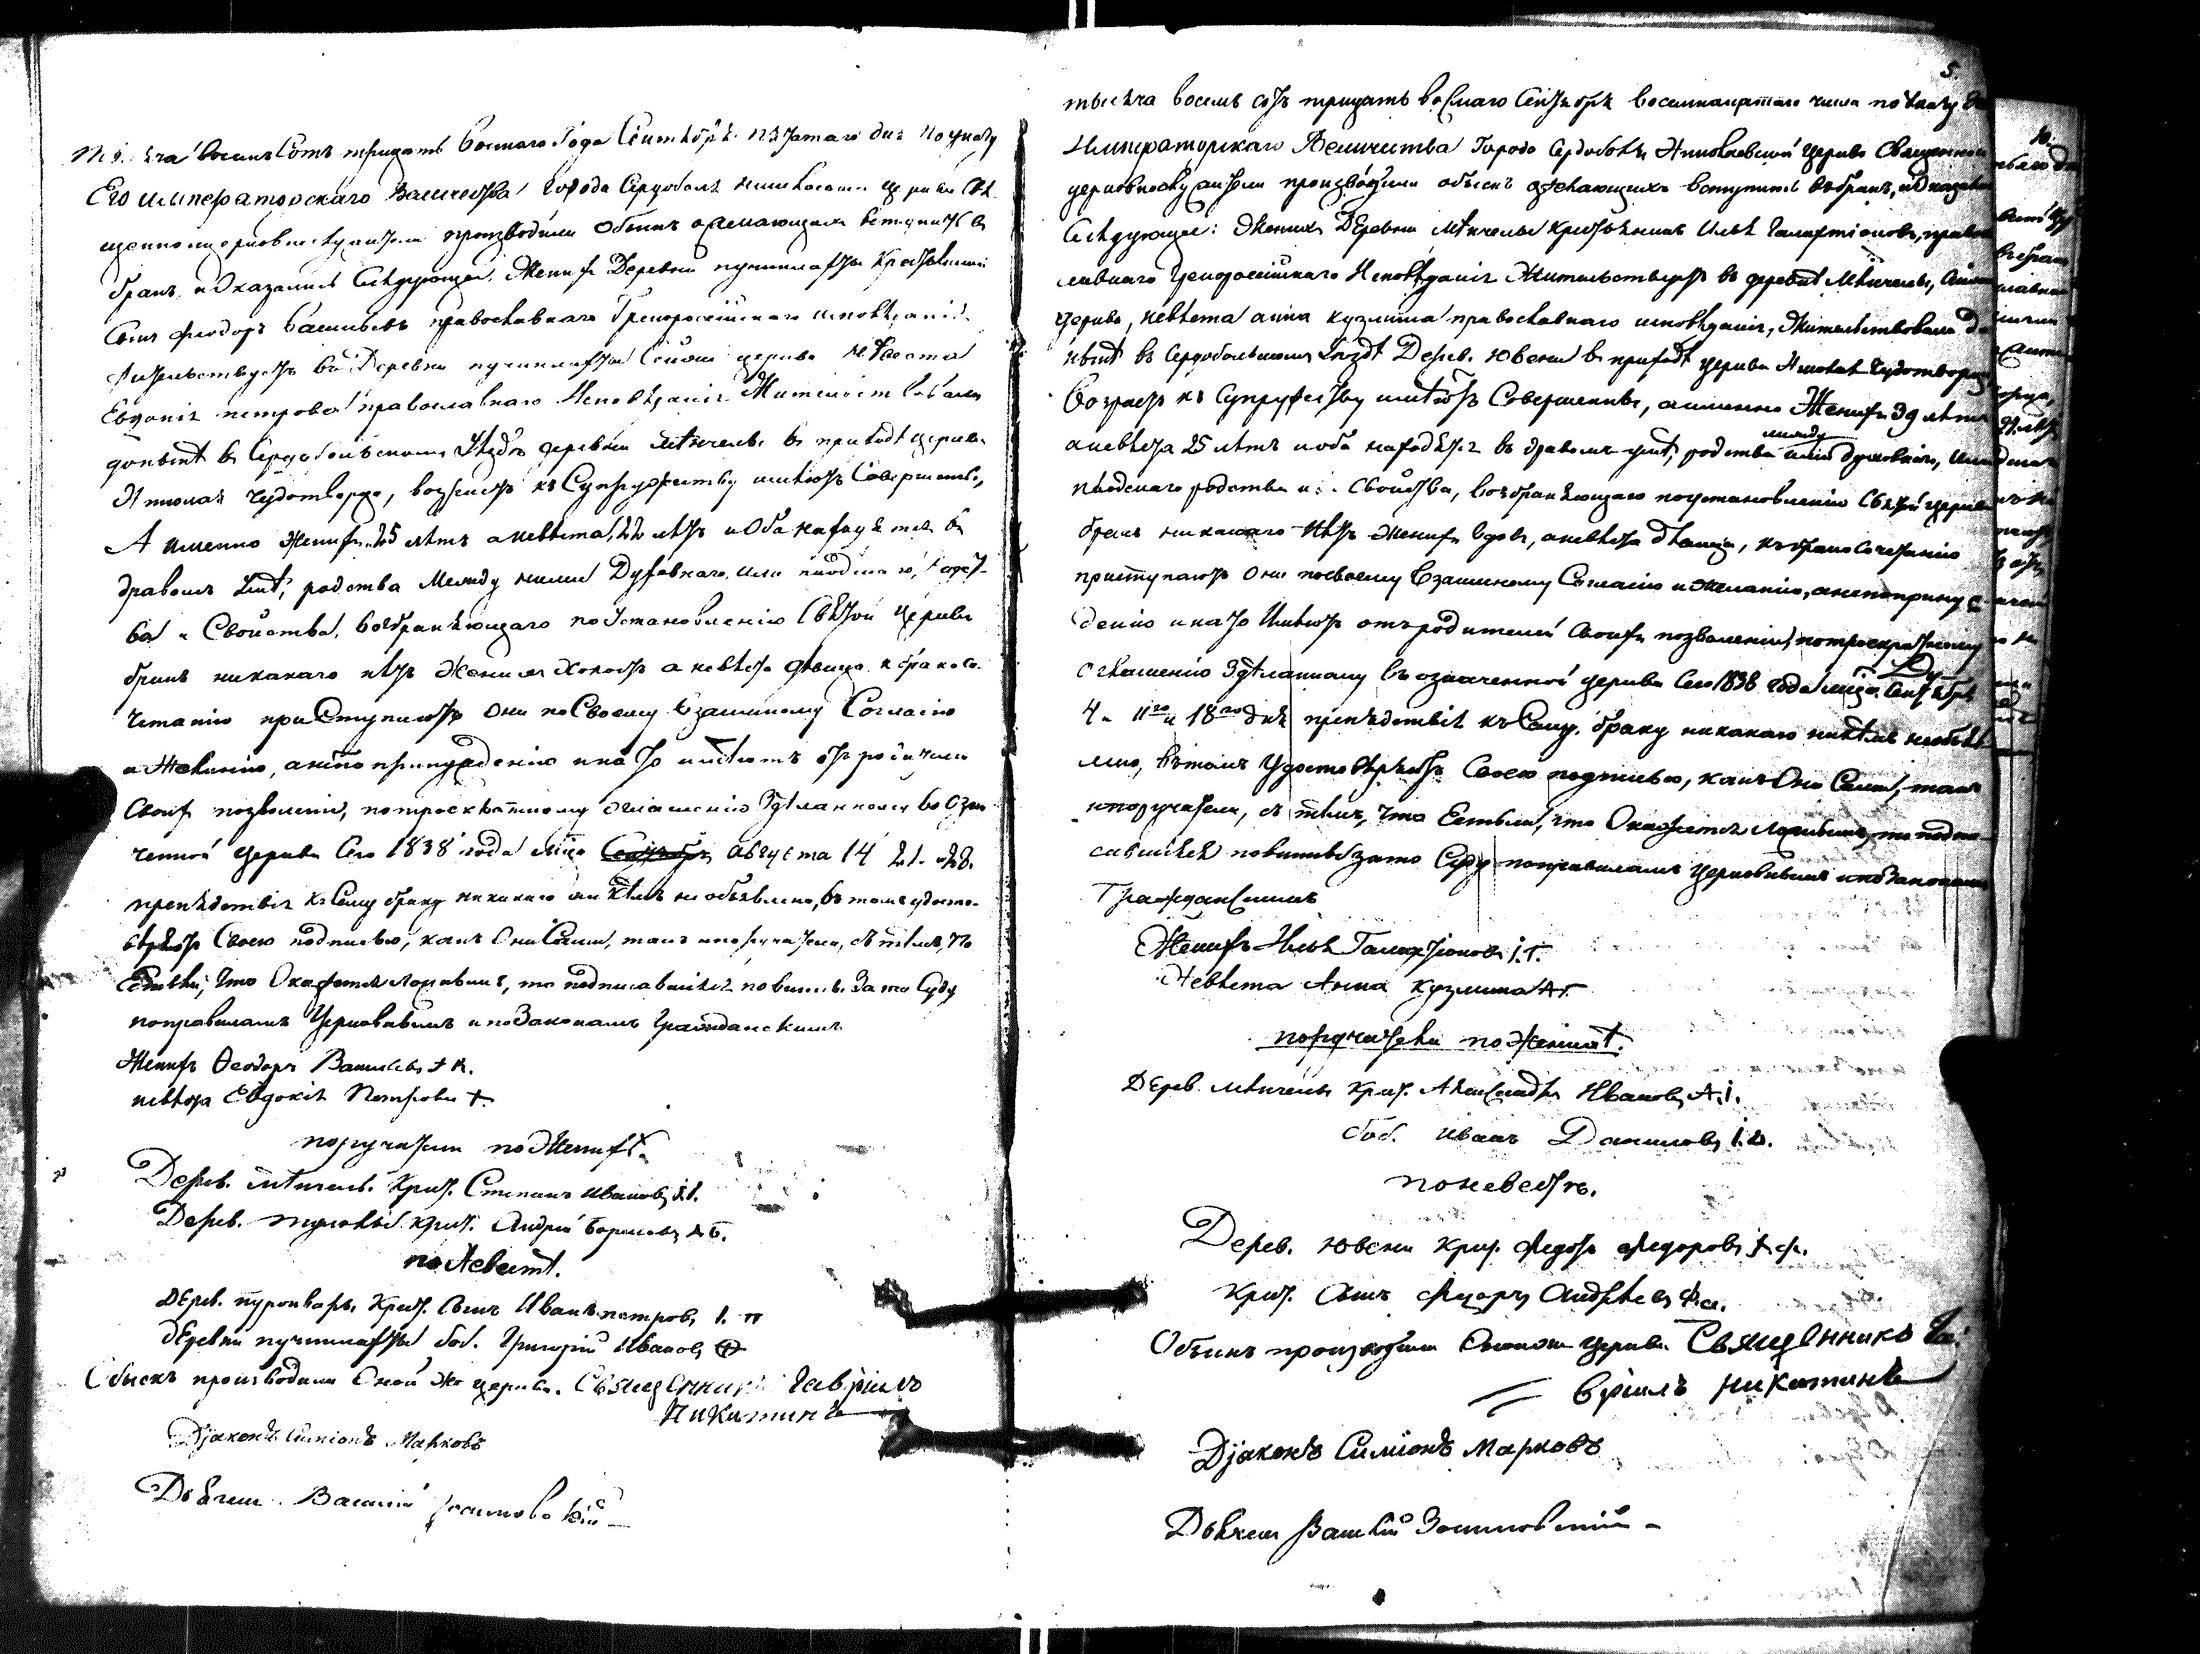 восемь сотъ тридцать восмаго Года Сентября пятаго дня По указу
Его императорскаго Величества города Сердоболя николаевской церкви Свя-
щенноцерковнослужители производили обыскъ о желающихъ вступить въ
бракъ, и Оказалось Слѣдующее: Женихъ Деревни крестьянской
Сынъ Флодоръ Васильевъ православнаго Грекороссійскаго исповѣданія
жительствуетъ въ Деревни церкви невѣста
Евдокія петрова православнаго Исповѣданія Жительствовала
донынѣ въ Сердобольскомъ Уѣздѣ деревни Мѣнчелы въ приходѣ церкви
Николая Чудотворца, возрастъ къ Супружеству имѣютъ Совершенный,
А именно женихъ 25 лѣтъ а невѣста 22 лѣтъ и Оба находятся въ
здравомъ умѣ; родства Между ними Духовнаго или плодскаго родст-
ва и Свойства, возбраняющаго по Установленію Святой Церкви
бракъ никакаго нѣтъ Женихъ Холостъ а невѣста дѣвица. к брако со-
четанію приступаютъ Они по Своему Взаимному Согласію
и Желанію, а не по принужденію и на то имѣютъ отъ родителей
Своихъ позволеніе, по троекратному оглашенію Здѣланному во Озна-
ченной Церкви Сего 1838 года мѣца Сентябр августа 14 21. и 28.
препятствія къ Сему браку никакаго никѣмъ не объявлено, въ томъ удосто-
вѣряютъ Своею подписью, какъ Они Сами, такъ и поручатели, съ тѣмъ, что
Естьли, что Окажется Ложнымъ, то подписавшіеся повинны за то Суду
по правиламъ Церковнымъ и по Законамъ Гражданскимъ
Женихъ Ѳеодоръ Васильевъ + В.
невѣста Евдокія Петрова +
поручатели по Женихѣ.
Дерев. Мѣнчелы. Крест. Степанъ Ивановъ
Дерев. крест. Андрей Борисовъ А Б.
по Невестѣ.
Дерев. Крест. Сынъ Иванъ петровъ І. П
деревни боб. Григорій Ивановъ
Обыскъ производили Оной же церкви. Священникъ Гавріилъ
Никитинъ
Діаконъ Симіонъ Марковъ
Дьячекъ Василій
5.
тысяча восемь сотъ тридцать восмаго Сентября восемнацатаго числа по Указу Его
Императорскаго Величества Города Сердоболя Николаевской Церкви Священно
церковнослужители производили обыскъ о желающихъ вступить въ бракъ, и Оказалось
Слѣдующее: Женихъ Деревни Мѣнчелы Крестьянинъ Илья Галактіоновъ, право
славнаго Грекороссійскаго Исповѣданія Жительствуетъ въ деревнѣ Мѣнчелы,
Церкви, невѣста анна кузмина православнаго исповѣданія, Жительствовала до
нынѣ въ Сердобольскомъ Уѣздѣ Дерев. Ювени въ приходѣ церкви Николая Чудотворца
Возрастъ къ Супружеству имѣютъ Совершенный, а именно Женихъ 39 лѣтъ
а невѣста 25 лѣтъ и оба находятся въ здравомъ умѣ, родства между ними духовнаго, или
плодскаго родства и Свойства, возбраняющаго по установленію Святой церкви
бракъ никакаго нѣтъ Женихъ вдовъ, а невѣста дѣвица, къ бракосочетанію
приступаютъ Они по своему Взаимному Согласію и желанію, а не по принуж
денію и на то Имѣютъ отъ родителей Своихъ позволеніе, по троекратному
оглашенію Здѣланному въ означенной церкви Сего 1838 года мѣца Сентября
4. 11го и 18го дня препятствія къ Сему браку никакаго никѣмъ необъявле
но, въ томъ Удостовѣряютъ Своею подписью, какъ Они Сами, такъ
и поручатели, съ тѣмъ, что Естьли, что Окажется Ложнымъ, то подпи
савшіеся повинны за то Суду по правиламъ Церковнымъ и по Законамъ
Гражданскимъ
Женихъ Илья Галактіоновъ І. Г.
Невѣста Анна Кузмина
поручатели по Женихѣ.
Дерев. Мѣнчелы Крест. Александръ Ивановъ А. І.
боб. Иванъ Даниловъ І. Д.
по невестѣ.
Дерев. Ювени Крест. Федоръ Федоровъ Ф. Ф.
Крест. Сынъ Федоръ Андреевъ Ф. а.
Обыскъ производили Оной церкви Священникъ Га-
вріилъ Никитинъ
Діаконъ Симіонъ Марковъ
Дьячекъ Василій